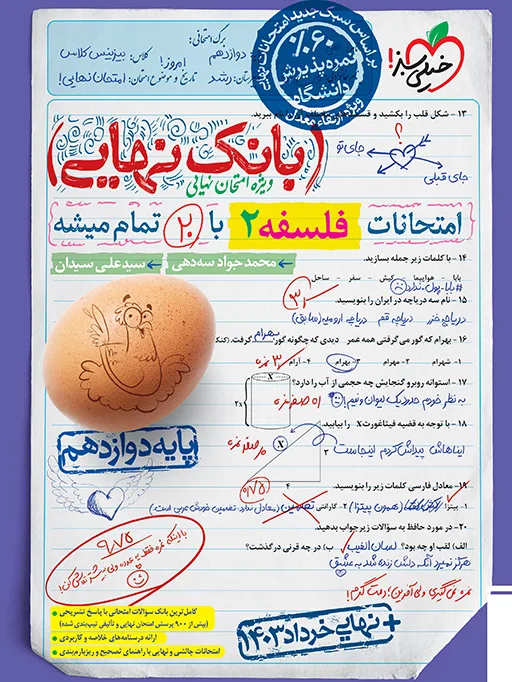 برگ امتحانی:
دوازدهم
کلاس: بیزینس کلاس
امروز!
رشد
تاریخ و موضوع امتحان: امتحان نهایی!
بر اساس سبک جدید امتحانات نهایی
٪۶۰
نمره پذیرش
دانشگاه
ویژه ارتقاء معدل
خیلی سبز!
۱۳ - شکل قلب را بکشید و
ببرید.
؟
جای تو
جای قبلی
(بانک نهایی)
ویژه امتحان نهایی
امتحانات فلسفه ۲ با ۲۰ تمام میشه
محمدجواد سه‌دهی
سیدعلی سیدان
۱۴ - با کلمات زیر جمله بسازید.
بابا - هواپیما - کیش - سفر - ساحل
#بابا_پول_ندارد
۱۵ - نام سه دریاچه در ایران را بنویسید.
دریاچه خزر دریاچه قم دریاچه ارومیه (سابق)
۱۶ - بهرام که گور می‌گرفتی همه عمر دیدی که چگونه گور بهرام گرفت.
۱- شهرام ۲- مهرام ۳- بهرام ۴- آرام
۱۷ - استوانه روبرو گنجایش چه حجمی از آب را دارد؟
به نظر خودم حدود یک لیوان و نیم!
x
2x
۱۸ - با توجه به قضیه فیثاغورث X را بیابید.
ایناهاش پیداش کردم اینجاست
X
۳
۴
۰/۷۵
۱۹- معادل فارسی کلمات زیر را بنویسید.
۱- پیتزا (همون پیتزا) ۲- گارانتی تضمین (معادل نداره. تضمین خودش عربی است.)
۲۰- در مورد حافظ به سؤالات زیر جواب بدهید.
الف) لقب او چه بود؟ لسان الغیب ب) در چه قرنی درگذشت؟
هرگز نمیرد آنکه دلش زنده شد به عشق
نمره نمی‌گیری ولی آفرین! دمت گرم!
پایه دوازدهم
۹/۷۵
کامل‌ترین بانک سؤالات امتحانی با پاسخ تشریحی
(بیش از ۹۰۰ پرسش امتحان نهایی و تألیفی تیپ‌بندی شده)
ارائه درسنامه‌های خلاصه و کاربردی
امتحانات چالشی و نهایی با راهنمای تصحیح و ریزبارم‌بندی
+ نهایی خرداد ۱۴۰۳